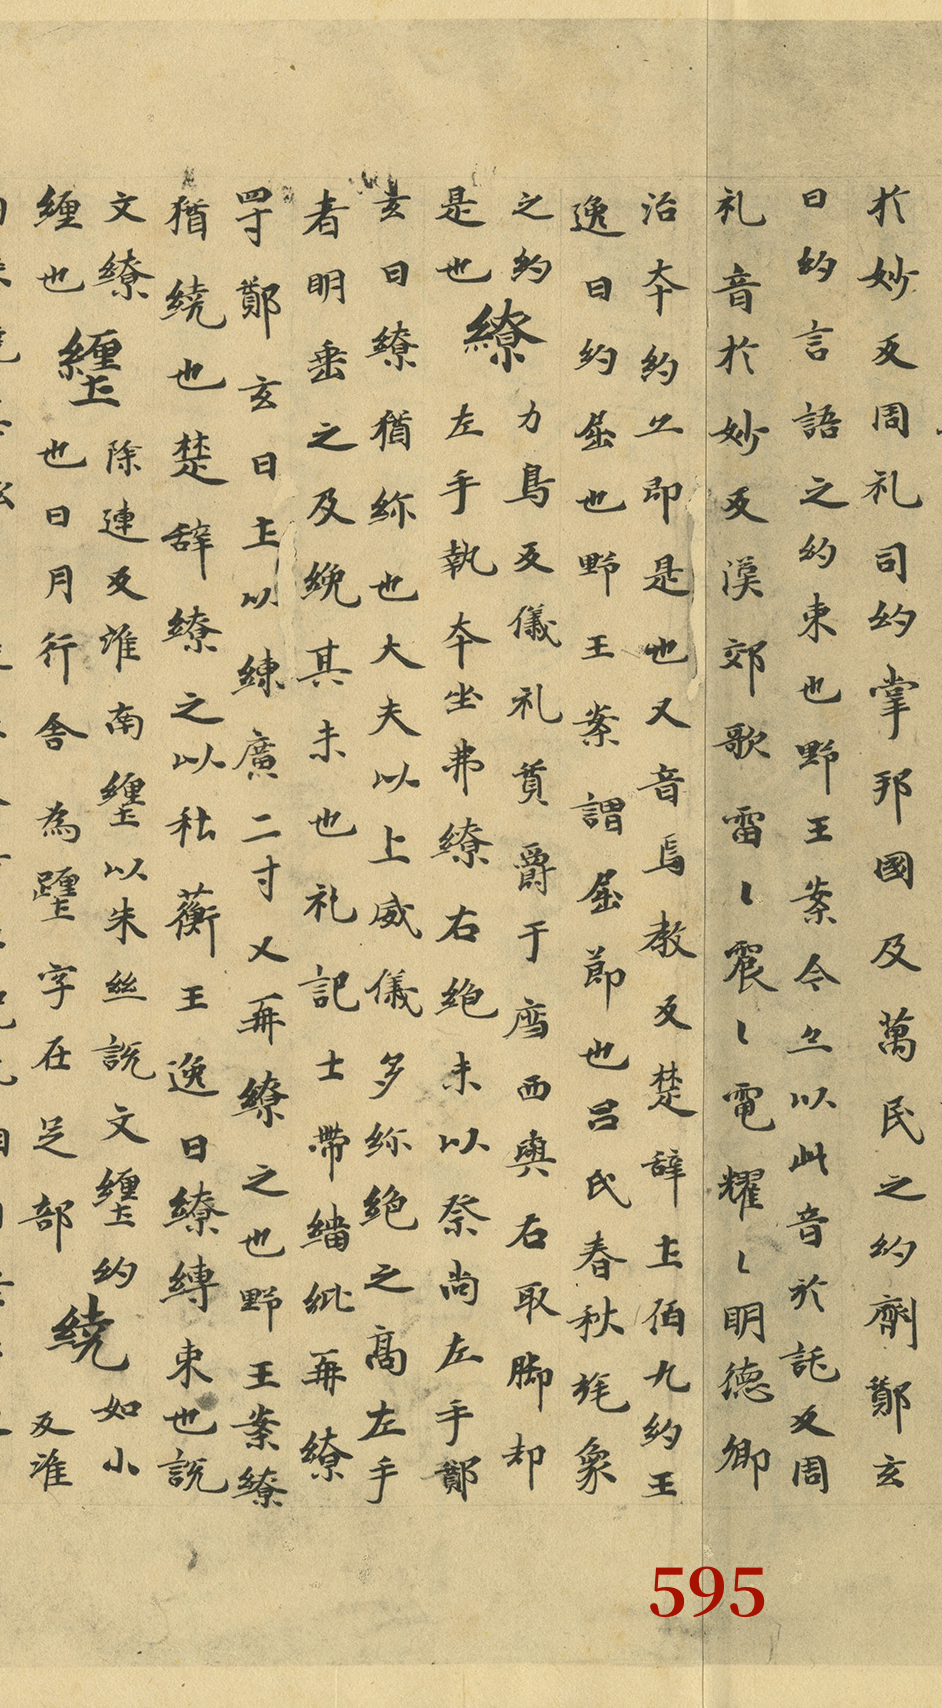 於妙反周礼司約掌邦國及萬民之約劑鄭玄
曰約言語之約束也野王案今亦以此音於詫反周
礼音於妙反漢郊歌雷〻震〻電耀〻明德鄉
治夲約亦即是也又音烏教反楚辞土伯九約王
逸曰約屈也野王案謂屈莭也吕氏春秋旄象
之約繚力鳥反儀礼賓爵于席西興右取脚却
是也左手執夲坐弗繚右絶末以祭尚左手鄭
玄曰繚猶紾也大夫以上威儀多紾絶之髙左手
者明垂之及絻其末也礼記士帶繬紕再繚
四寸鄭玄曰士以練廣二寸又再繚之也野王案繚
猶繞也楚辞繚之以杜蘅王逸曰繚縛束也説
文繚纏除連反淮南纏以朱絲説文纏約繞如小
纏也也日月行舎為躔字在足部反淮
595